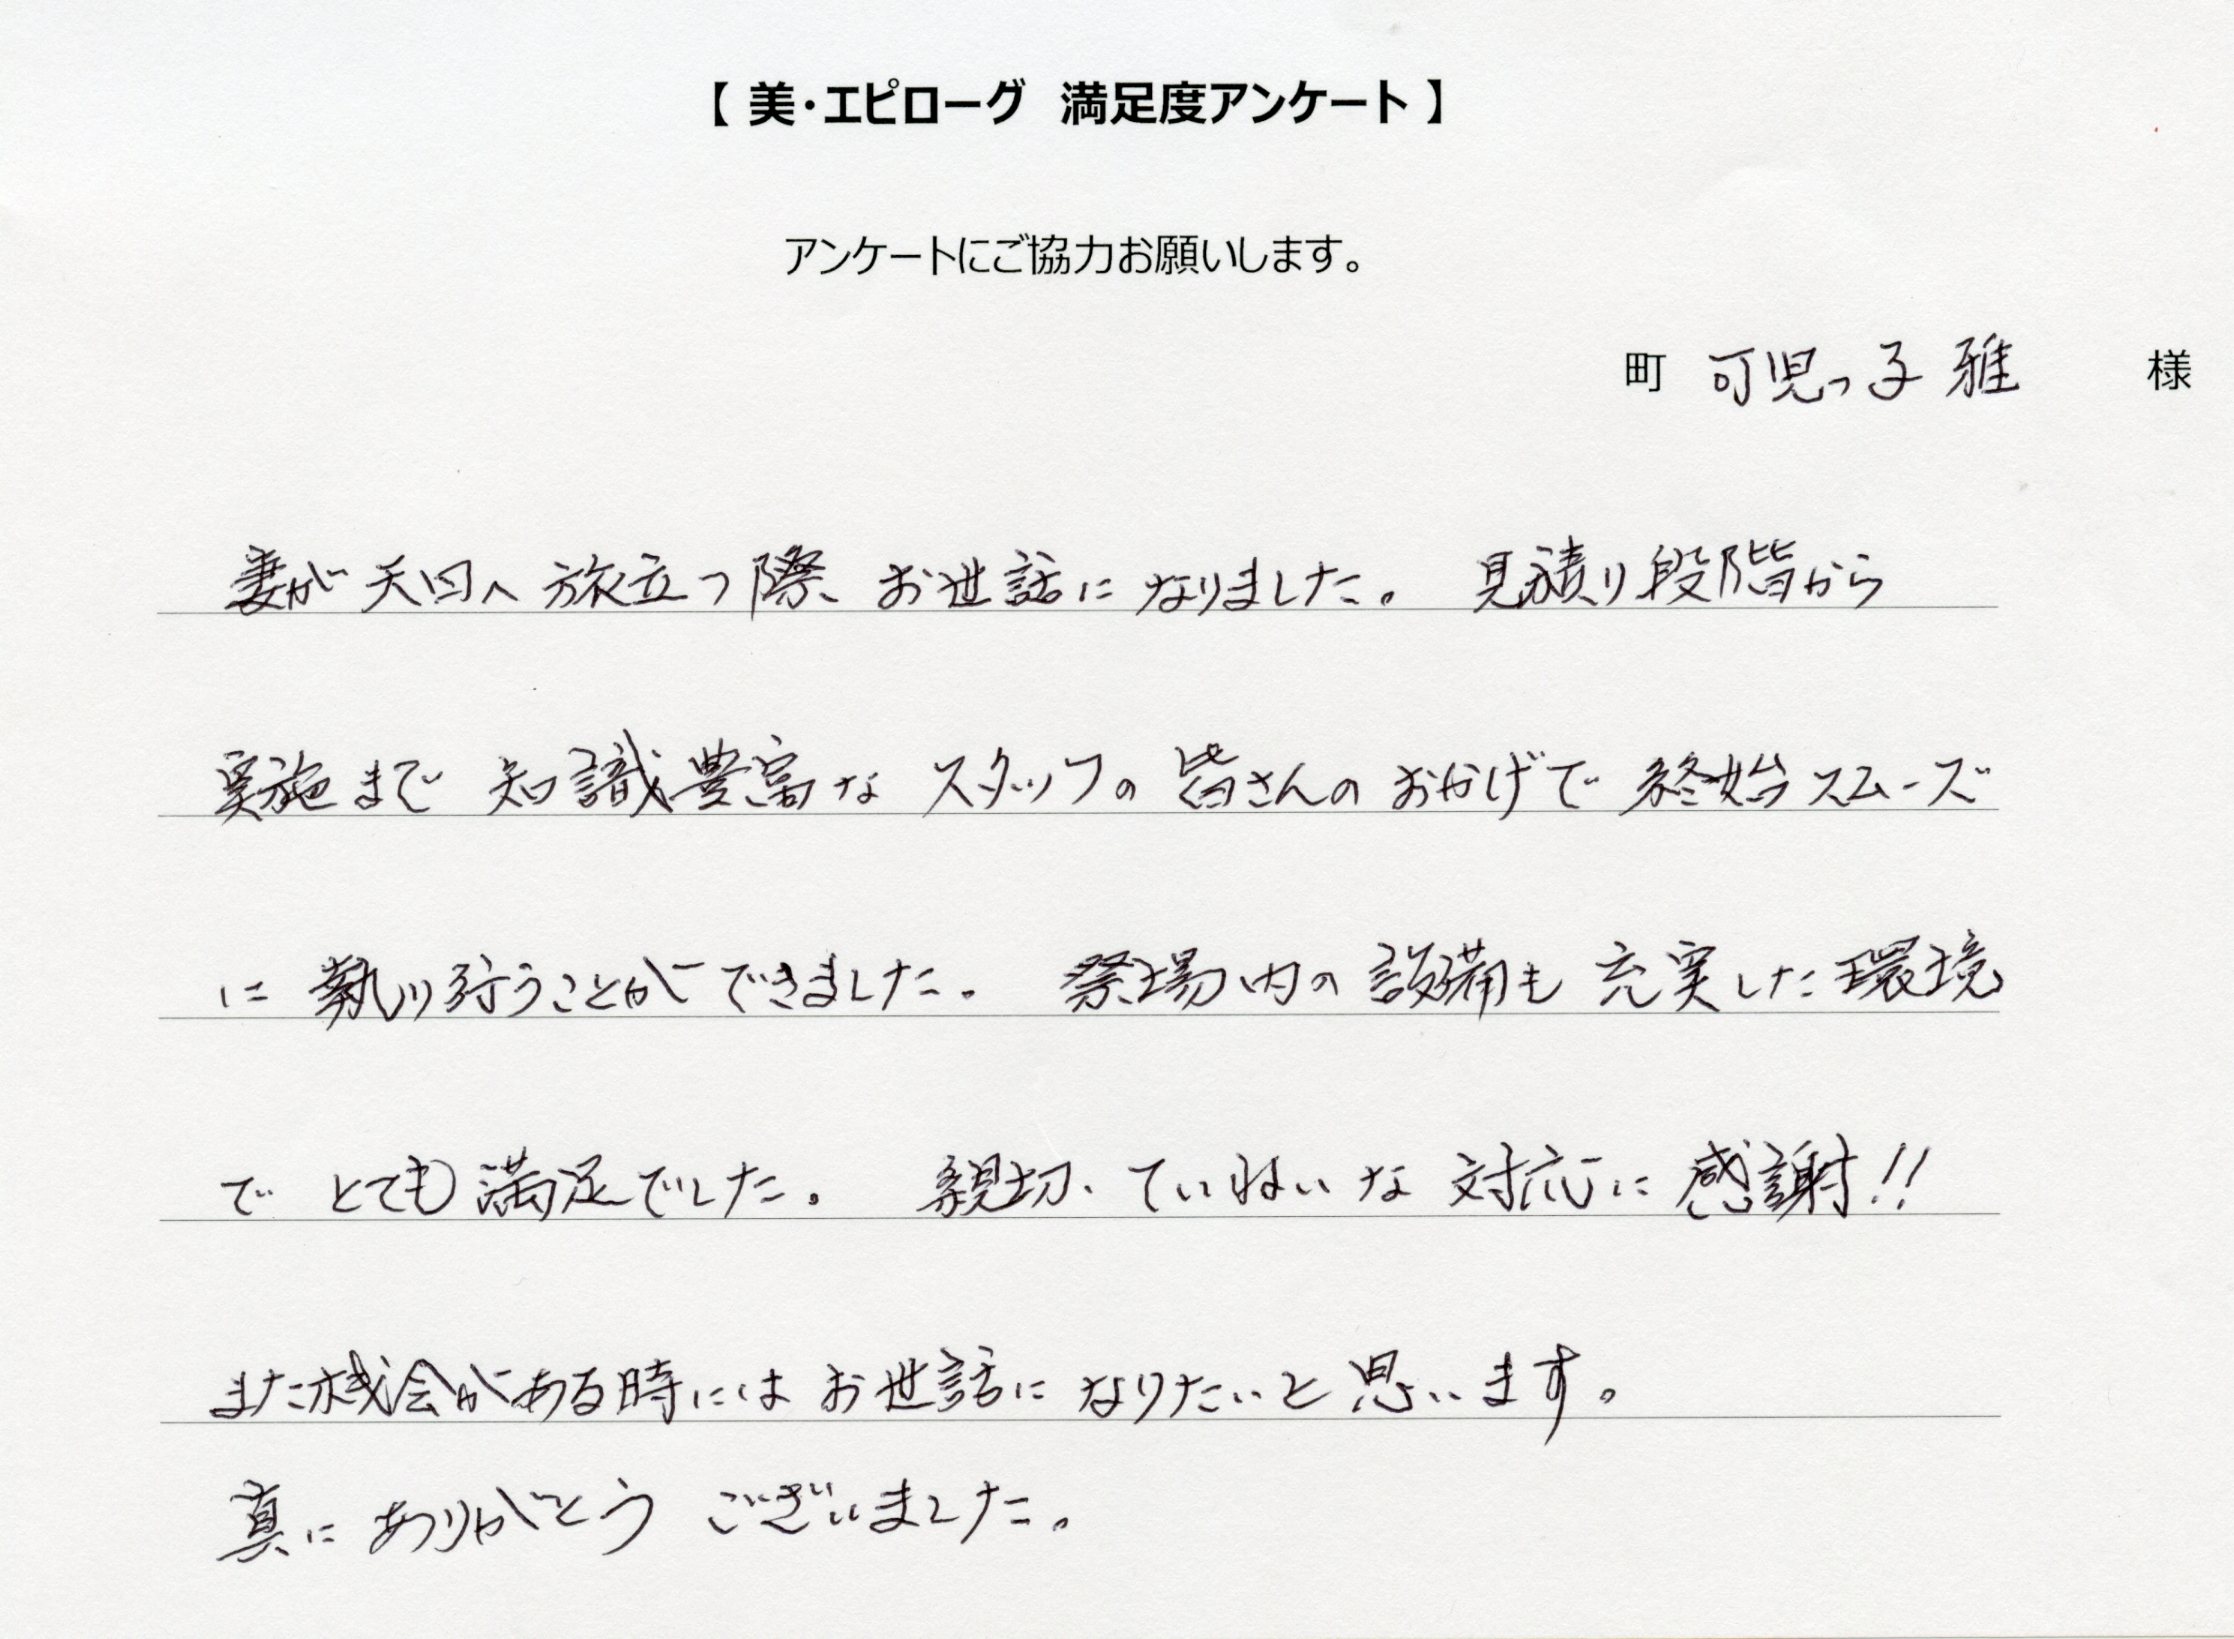 【 美・エピローグ 満足度アンケート 】
アンケートにご協力お願いします。
町 可児っ子 雅 様
妻が天国へ旅立つ際、お世話になりました。 見積り段階から
実施まで 知識豊富な スタッフの 皆さんの おかげで 終始スムーズ
に 執り行うことができました。 祭場内の 設備も 充実した環境
で とても満足でした。 親切、ていねいな 対応に 感謝!!
また機会がある時には お世話に なりたいと 思います。
真に ありがとう ございました。